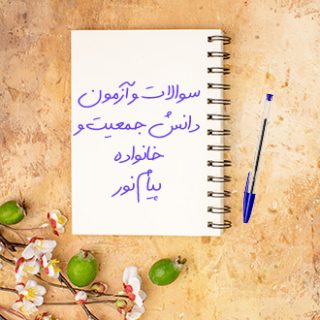 سوالات و آزمون
دانش جمعیت و
خانواده
پیام نور